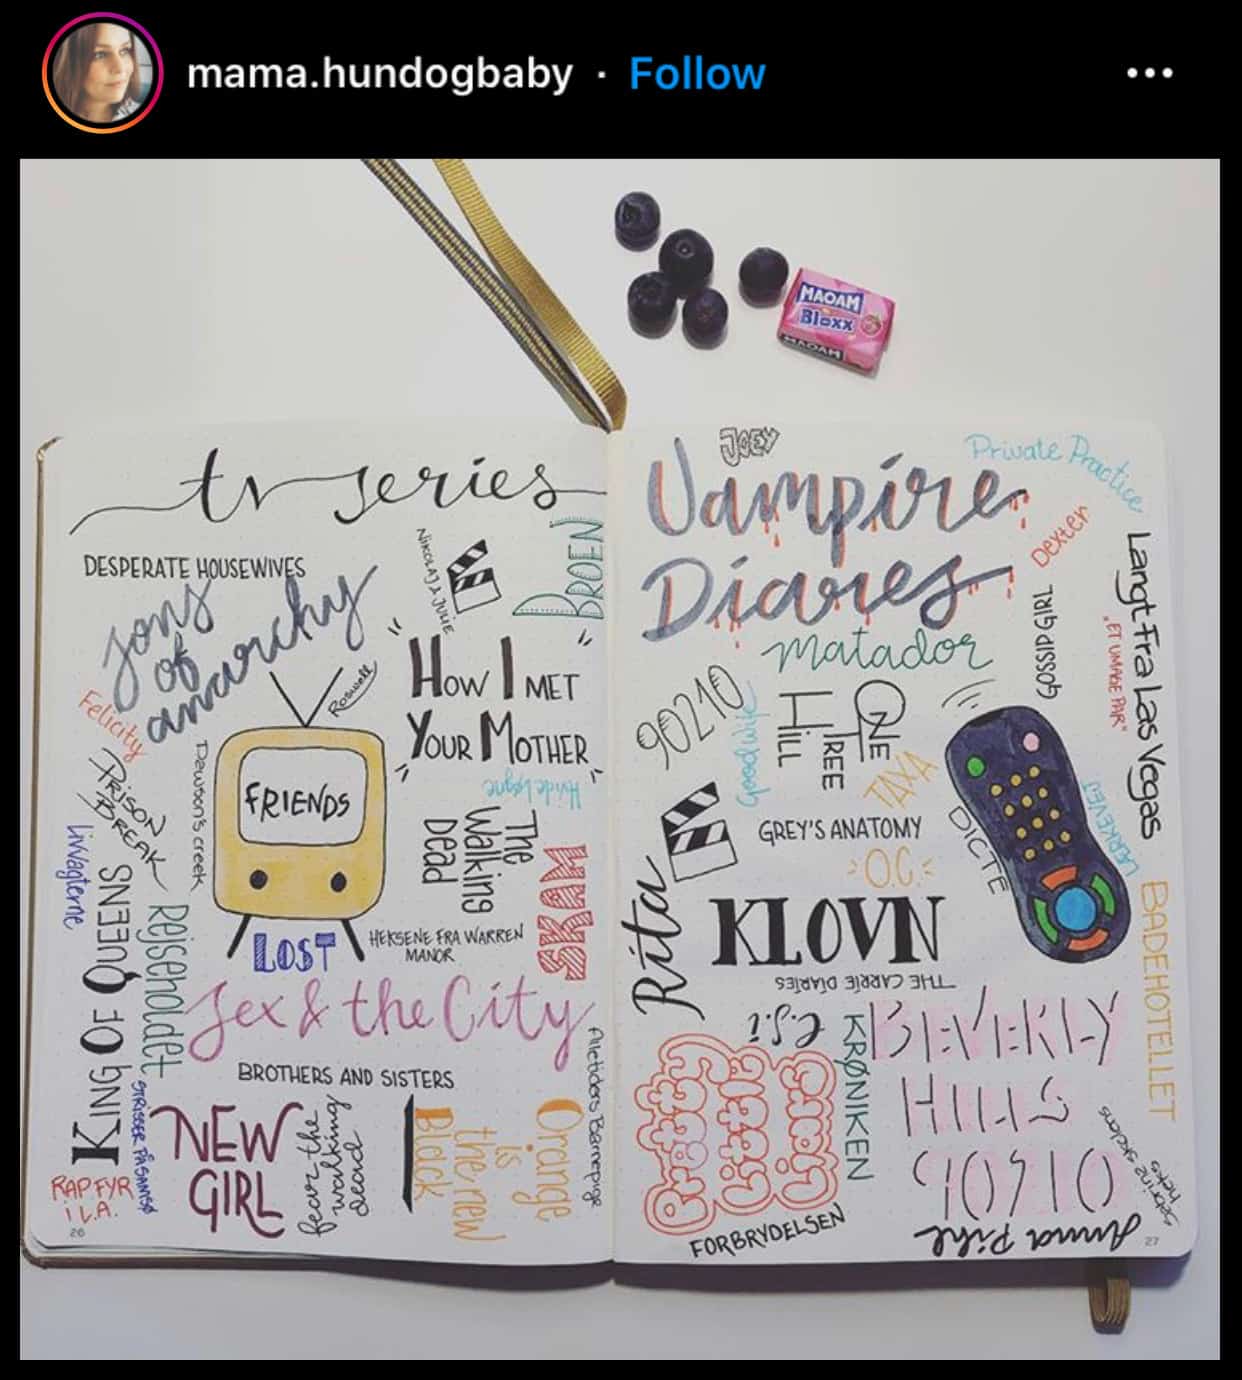 mama.hundogbaby · Follow
MAOAM
Bloxx
MAOAM
tv series
DESPERATE HOUSEWIVES
sons
of
anarchy
NIKOLAJ & JULIE
BROEN
Roswell
"HOW I MET
YOUR MOTHER"
Felicity
PRISON
BREAK
Dawson's creek
FRIENDS
Hvide løgne
The
Walking
Dead
SKAM
Livvagterne
KING OF QUEENS
Rejseholdet
LOST
HEKSENE FRA WARREN
MANOR
Sex & the City
BROTHERS AND SISTERS
Alletiders Barnepige
STRISSER PÅ SAMSØ
RAP FYR
I L.A.
NEW
GIRL
fear the
walking
dead
Orange
is
the new
Black
26
JOEY
Vampire
Diaries
Private Practice
Dexter
GOSSIP GIRL
Langt Fra Las Vegas
"ET UMAGE PAR"
matador
90210
Goodwife
ONE
TREE
HILL
TAXA
GREY'S ANATOMY
O.C.
DICTE
LÆRKEVEJ
Rita
KLOVN
THE CARRIE DIARIES
BADEHOTELLET
c.s.i
KRØNIKEN
BEVERLY
HILLS
90210
Pretty
Little
Liars
FORBRYDELSEN
Anna Pihl
27